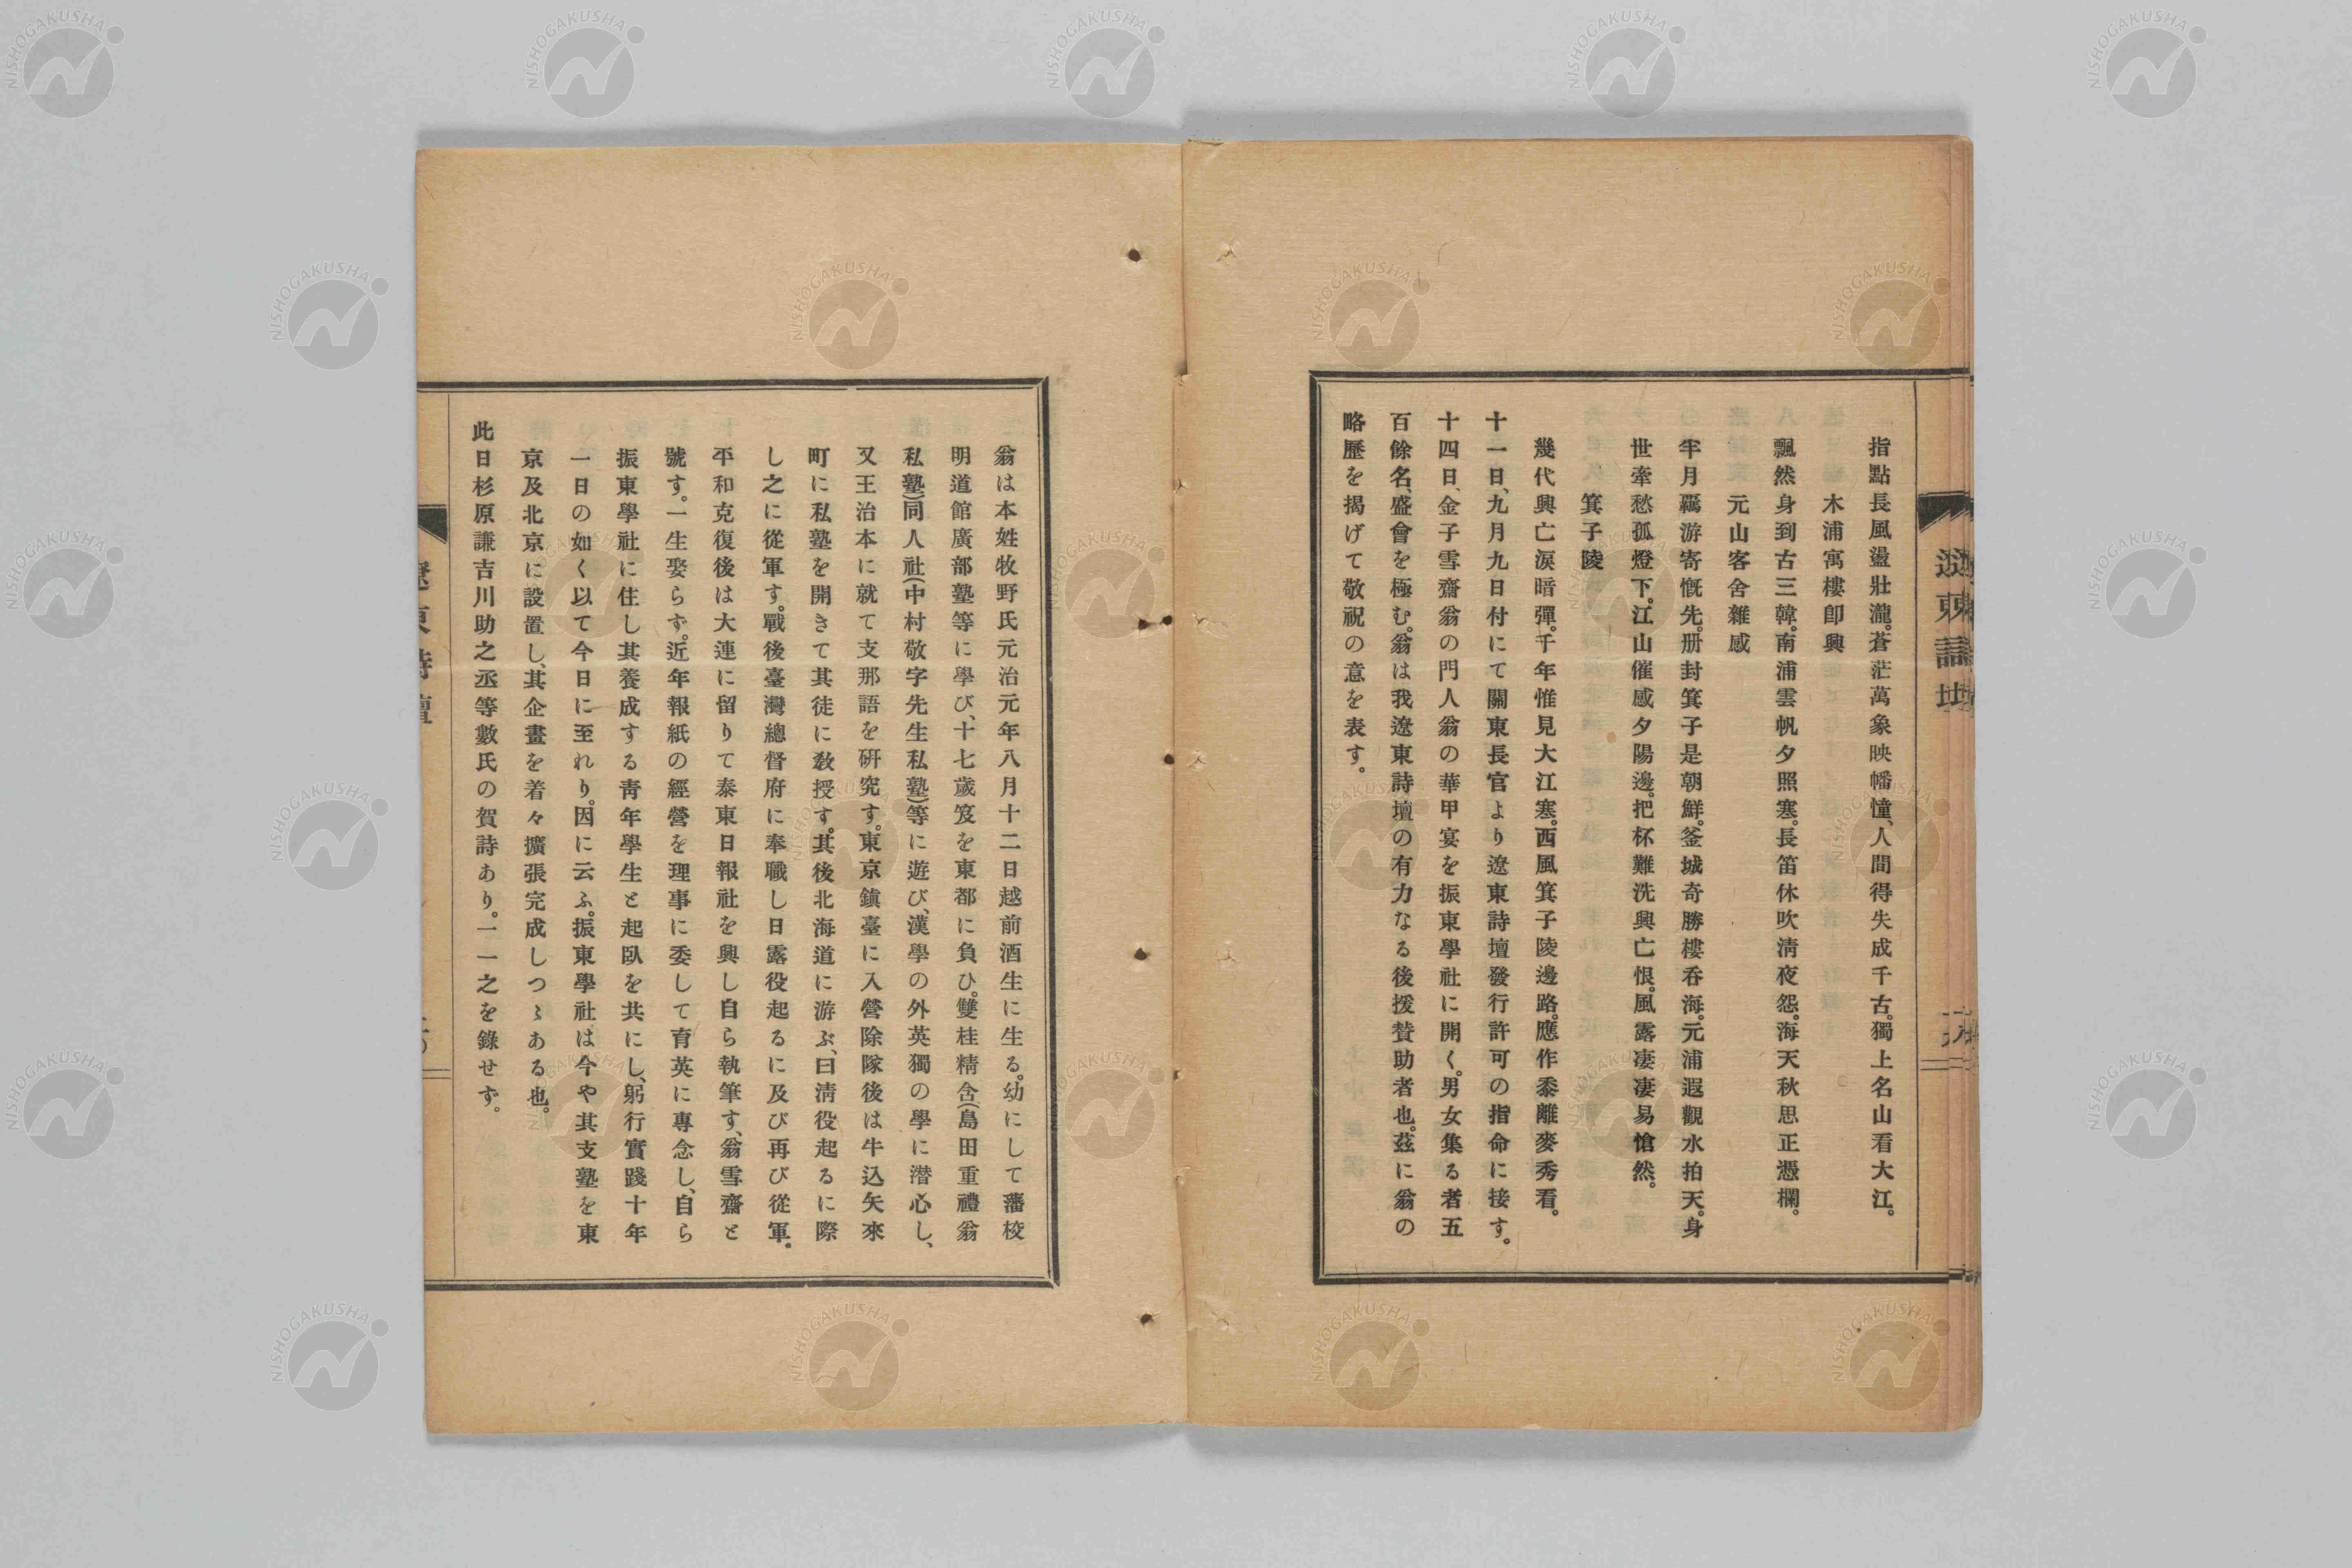 指點長風盪壯瀧。蒼茫萬象映幡憧、人間得失成千古。獨上名山看大江。
木浦寓樓卽興
飄然身到古三韓。南浦雲帆夕照寒。長笛休吹淸夜怨。海天秋思正憑欄。
元山客舍雜感
半月羈游寄慨先。册封箕子是朝鮮。釜城奇勝樓呑海。元浦遐觀水拍天。身
世牽愁孤燈下。江山催感夕陽邊。把杯難洗興亡恨。風露凄凄易愴然。
箕子陵
幾代興亡淚暗彈。千年惟見大江寒。西風箕子陵邊路。應作黍離麥秀看。
十一日、九月九日付にて關東長官より遼東詩壇發行許可の指命に接す。
十四日、金子雪齋翁の門人翁の華甲宴を振東學社に開く。男女集る者五
百餘名、盛會を極む。翁は我遼東詩壇の有力なる後援賛助者也。茲に翁の
略歷を揭げて敬祝の意を表す。
翁は本姓牧野氏元治元年八月十二日越前酒生に生る。幼にして藩校
明道館廣部塾等に學び、十七歲笈を東都に負ひ。雙桂精舍(島田重禮翁
私塾)同人社(中村敬宇先生私塾)等に遊び、漢學の外英獨の學に潜心し、
又王治本に就て支那語を硏究す。東京鎭臺に入營除隊後は牛込矢來
町に私塾を開きて其徒に敎授す。其後北海道に游ぶ、日淸役起るに際
し之に從軍す。戰後臺灣總督府に奉職し日露役起るに及び再び從軍。
平和克復後は大連に留りて泰東日報社を興し自ら執筆す、翁雪齋と
號す。一生娶らず。近年報紙の經營を理事に委して育英に專念し、自ら
振東學社に住し其養成する靑年學生と起臥を共にし、躬行實踐十年
一日の如く以て今日に至れり。因に云ふ。振東學社は今や其支塾を東
京及北京に設置し、其企畫を着々擴張完成しつゝある也。
此日杉原謙吉川助之丞等數氏の賀詩あり。一一之を錄せず。
遼東詩壇
NISHOGAKUSHA